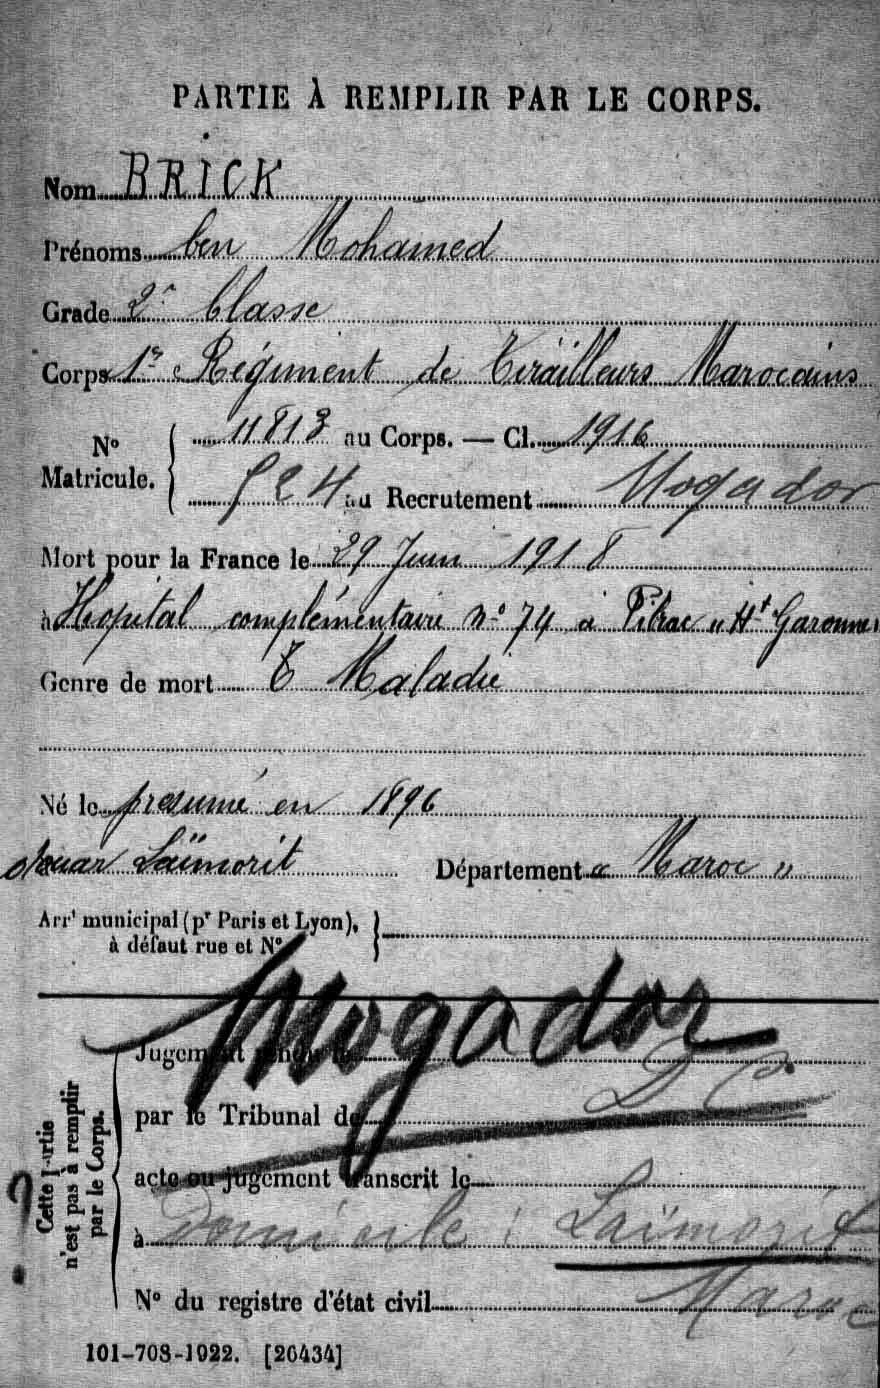 PARTIE À REMPLIR PAR LE CORPS.
Nom BRICK
Prénoms ben Mohamed
Grade 2e Classe
Corps 1er Régiment de Tirailleurs Marocains
N° Matricule. 11813 au Corps. — Cl. 1916
524 au Recrutement Mogador
Mort pour la France le 29 Juin 1918
à Hopital complémentaire n° 74 à Pibrac "Hte Garonne"
Genre de mort Maladie
Né le présumé en 1896
douar Laïmorit Département « Maroc »
Arrt municipal (pr Paris et Lyon),
à défaut rue et N°
Mogador
Jugement rendu le
par le Tribunal de
acte ou jugement transcrit le
à Domicile : Laïmorit
Maroc
N° du registre d'état civil
Cette partie
n'est pas à remplir
par le Corps.
?
101-708-1922. [26434]